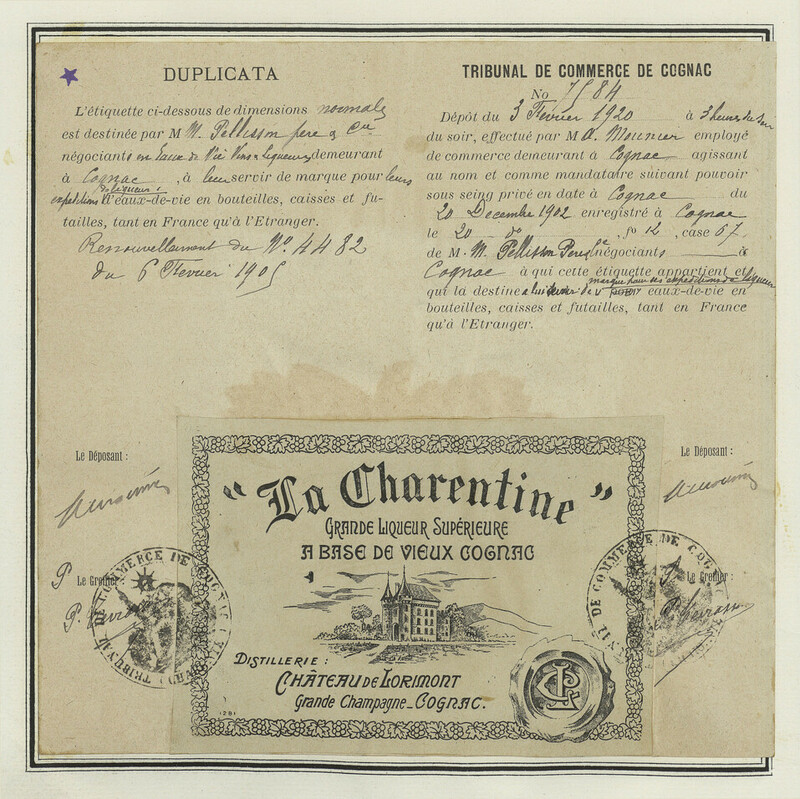 DUPLICATA
L'étiquette ci-dessous de dimensions normales
est destinée par M M. Pellisson père & Cie
négociants en Eaux de Vie Vins & Liqueurs demeurant
à Cognac, à leur servir de marque pour leurs
expéditions de liqueurs & d'eaux-de-vie en bouteilles, caisses et fu-
tailles, tant en France qu'à l'Etranger.
Renouvellement du No. 4482
du 6 Février 1905
TRIBUNAL DE COMMERCE DE COGNAC
No 7584
Dépôt du 3 Février 1920 à 3 heures du soir
du soir, effectué par M A. Meunier employé
de commerce demeurant à Cognac agissant
au nom et comme mandataire suivant pouvoir
sous seing privé en date à Cognac du
20 Décembre 1902 enregistré à Cognac
le 20 do, fo 12, case 67
de M. M. Pellisson Père & Cie négociants à
Cognac à qui cette étiquette appartient et
qui la destine à lui servir de marque pour ses expéditions de liqueur
eaux-de-vie en
bouteilles, caisses et futailles, tant en France
qu'à l'Etranger.
Le Déposant :
Le Greffier :
Le Déposant :
Le Greffier :
TRIBUNAL DE COMMERCE DE COGNAC
TRIBUNAL DE COMMERCE DE COGNAC
"La Charentine"
GRANDE LIQUEUR SUPÉRIEURE
A BASE DE VIEUX COGNAC
DISTILLERIE :
CHÂTEAU DE LORIMONT
Grande Champagne_COGNAC.
1281